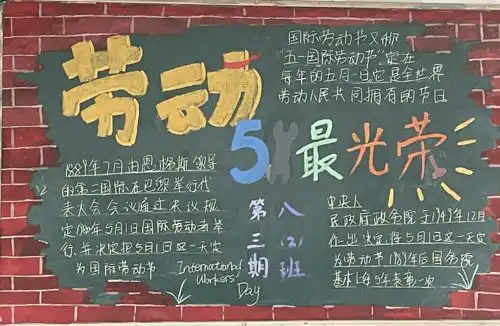 劳动
5.1
最光荣
国际劳动节又称
"五一国际劳动节"定在
每年的五月一日它是全世界
劳动人民共同拥有的节日
1889年7月由恩格斯领导
的第二国际在巴黎举行代
表大会会议通过决议规
定1890年5月1日国际劳动者举
行,并决定把5月1日这一天定
为国际劳动节
International
Workers'
Day
第三期
八(2)班
中央人
民政府政务院于1949年12月
作出决定,将5月1日这一天定
为劳动节1989年后国务院
基本上每5年表彰一次